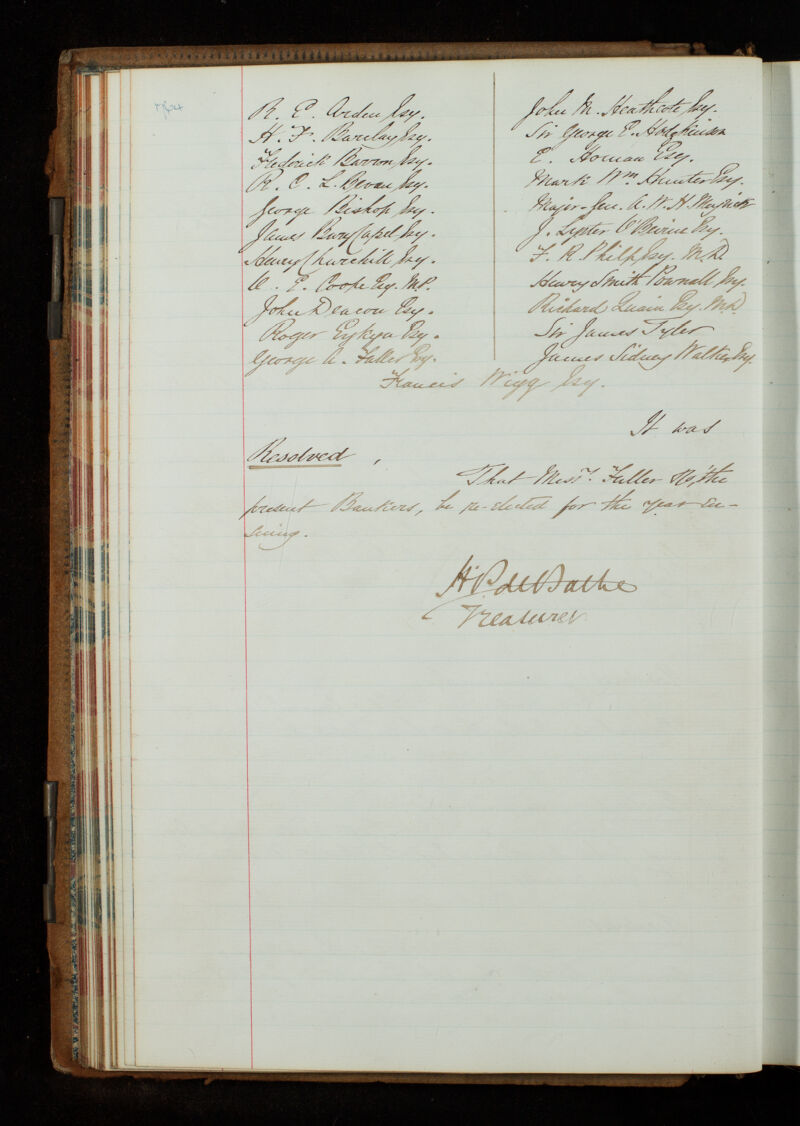 R. E. Arden Esq.
H. F. Barclay Esq.
Frederick Barron Esq.
R. C. L. Bevan Esq.
George Bishop Esq.
James Bury Capel Esq.
Henry Churchill Esq.
O. E. Coope Esq. M.P.
John Deacon Esq.
Roger Eykyn Esq.
George A. Fuller Esq.
John M. Heathcote Esq.
Sir George E. Hodgkinson
E. Homan Esq.
Mark Wm. Hunter Esq.
Major-Gen. A. W. H. Meyrick
J. Lyster O'Beirne Esq.
F. R. Philp Esq. M.D.
Henry Smith Pownall Esq.
Richard Quain Esq. M.D.
Sir James Tyler
James Sidney Walker Esq.
Francis Wigg Esq.
It was
Resolved,
That Messrs. Fuller &c, the
present Bankers, be re-elected for the year en-
suing.
H P de Bathe
Treasurer